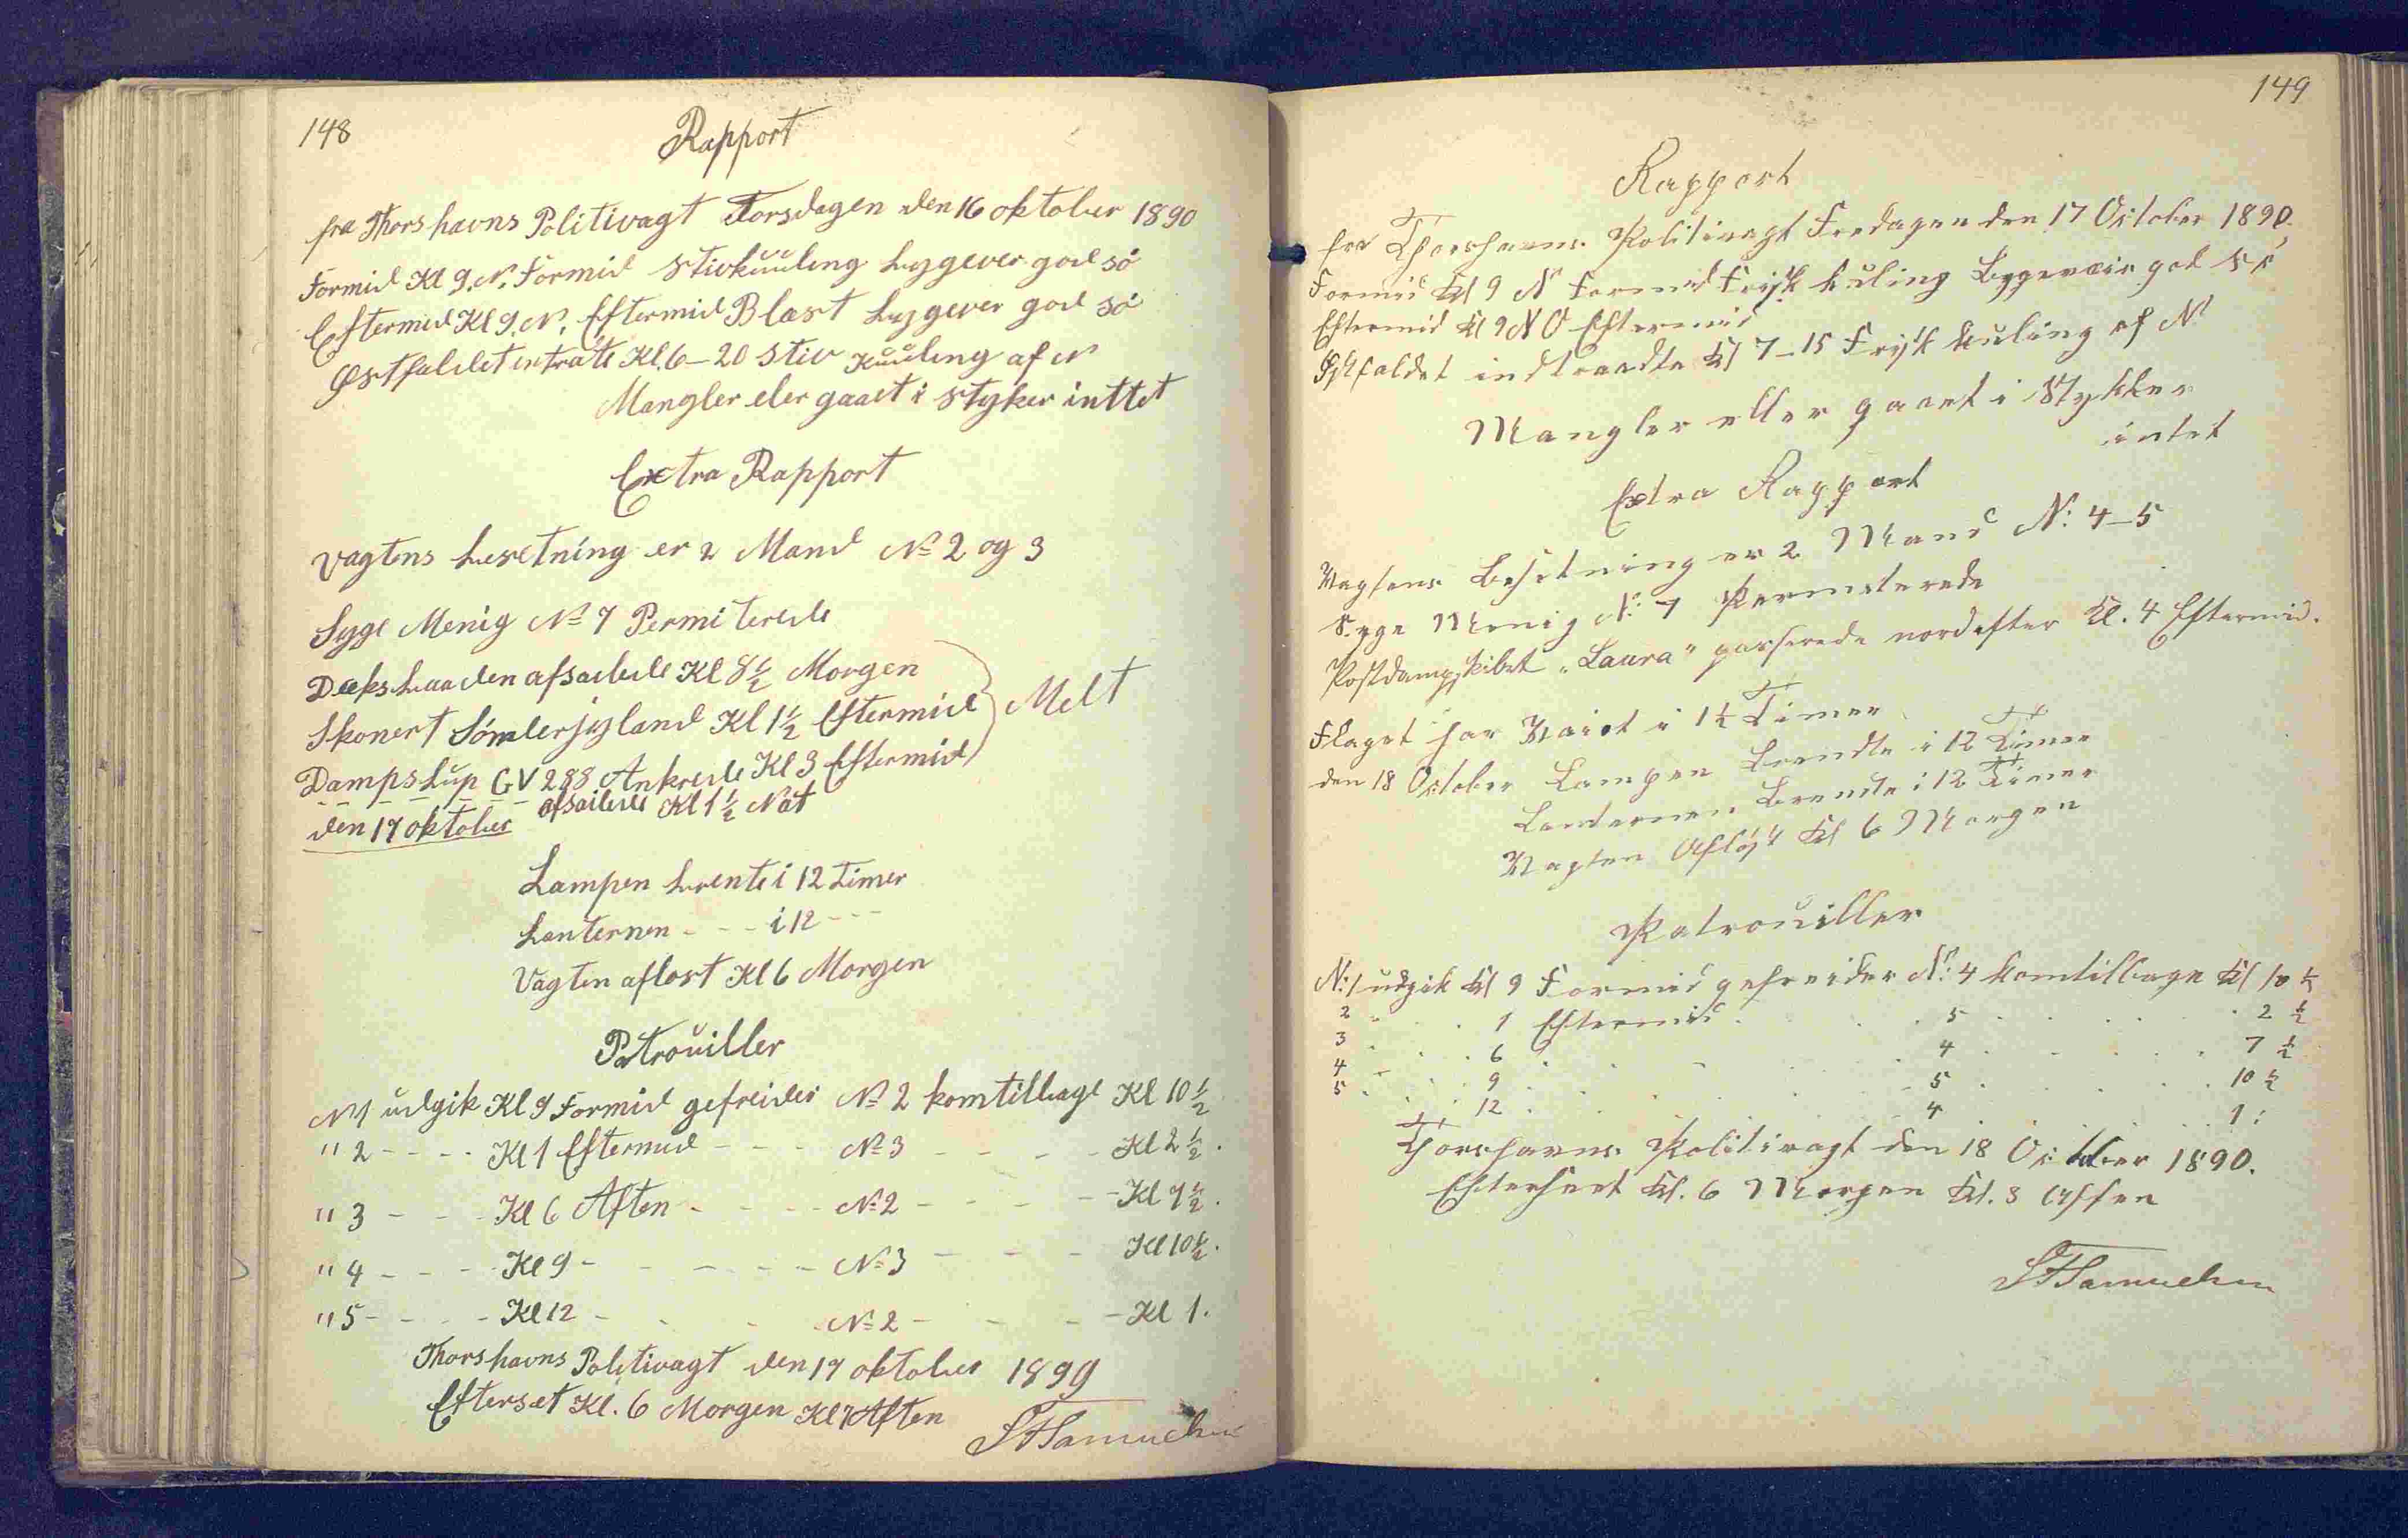 148
Rapport
fra Thorshavns Politivagt Torsdagen den 16 oktober 1890
Formid Kl 9. N. Formid Stivkuuling bygever god sö
Eftermid Kl 9. N. Eftermid Blast bygever god sö
Østfaldet intrate Kl. 6-20 Stiv Kuuling af N
Mangler eler gaaet i Styker inttet
Extra Rapport
Vagtens besetning er 2 Mand № 2 og 3
Syge Menig № 7 Permiterede
Deksbaaden afsailede Kl 8½ Morgen
Skonert Sönderjyland Kl 1½ Eftermid
Melt
Dampslup GV 288 Ankrede Kl 3 Eftermid
den 17 oktober
afsailede Kl 1½ Nat
Lampen brente i 12 Timer
Lanternen - - - i 12 - - -
Vagten aflost Kl 6 Morgen
Patrouiller
N 1 udgik Kl 9 Formid gefreider № 2 kom tilbage Kl 10½
" 2 - - - - Kl 1 Eftermid - - - № 3 - - - - Kl 2½.
" 3 - - - Kl 6 Aften - - - - № 2 - - - - Kl 7½.
" 4 - - - - Kl 9 - - - - - № 3 - - - Kl 10½.
" 5 - - - - Kl 12 - - - № 2 - - - - Kl 1.
Thorshavns Politivagt den 17 oktober 1890
Efterset Kl. 6 Morgen Kl 7 Aften
Samuelsen
149
Rapport
fra Thorshavns Politivagt Fredagen den 17 October 1890.
Formid Kl 9 N Formid Frisk kuling Bygeveir god Sö
Eftermid Kl 9 N O Eftermid
Østfaldet indtraadte Kl 7-15 Frisk kuling af N
Mangler eller gaaet i Stykker
intet
Extra Rapport
Vagtens Besetning er 2 Mand N: 4-5
Syge Menig N: 7 Permiterede
Postdampskibet „Laura" passerede nordefter Kl. 4 Eftermid.
Flaget har Vaiet i 1½ Timer
den 18 October Lampen Brendte i 12 Timer
Lanternen Brendte i 12 Timer
Vagten Afløst Kl 6 Morgen
Patrouiller
N: 1 udgik Kl 9 Formid gefreider N: 4 kom tilbage Kl 10½
2 . . . 1 Eftermid . . . 5 . . . . 2½
3 . . . 6 . . . 4 . . . . 7½
4 . . . 9 . . . 5 . . . . 10½
5 . . . 12 . . . 4 . . . . 1:
Thorshavns Politivagt den 18 October 1890.
Efterseet Kl. 6 Morgen Kl. 8 Aften
Samuelsen